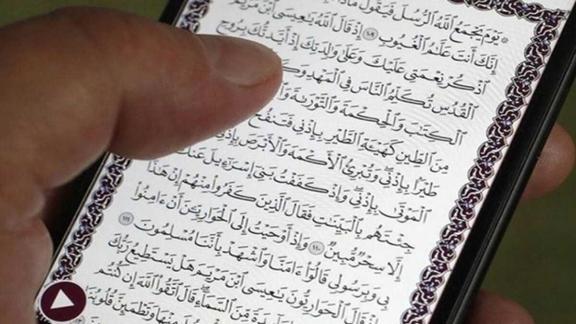 يَوْمَ يَجْمَعُ ٱللَّهُ ٱلرُّسُلَ فَيَقُولُ
إِنَّكَ أَنتَ عَلَّٰمُ ٱلْغُيُوبِ ١٠٩ إِذْ قَالَ ٱللَّهُ يَٰعِيسَى ٱبْنَ مَرْيَمَ
ٱذْكُرْ نِعْمَتِى عَلَيْكَ وَعَلَىٰ وَٰلِدَتِكَ إِذْ أَيَّدتُّكَ بِرُوحِ
ٱلْقُدُسِ تُكَلِّمُ ٱلنَّاسَ فِى ٱلْمَهْدِ
ٱلْكِتَٰبَ وَٱلْحِكْمَةَ وَٱلتَّوْرَىٰةَ
مِنَ ٱلطِّينِ كَهَيْـَٔةِ ٱلطَّيْرِ بِإِذْنِى فَتَنفُخُ
طَيْرًۢا بِإِذْنِى وَتُبْرِئُ ٱلْأَكْمَهَ وَٱلْأَبْرَصَ بِإِذْنِى
ٱلْمَوْتَىٰ بِإِذْنِى وَإِذْ كَفَفْتُ بَنِىٓ إِسْرَٰٓءِيلَ عَنكَ
جِئْتَهُم بِٱلْبَيِّنَٰتِ فَقَالَ ٱلَّذِينَ كَفَرُوا۟ مِنْهُمْ إِنْ هَٰذَآ
إِلَّا سِحْرٌ مُّبِينٌ ١١٠ وَإِذْ أَوْحَيْتُ إِلَى ٱلْحَوَارِيِّـۧنَ أَنْ ءَامِنُوا۟
بِى وَبِرَسُولِى قَالُوٓا۟ ءَامَنَّا وَٱشْهَدْ بِأَنَّنَا مُسْلِمُونَ ١١١
إِذْ قَالَ ٱلْحَوَارِيُّونَ يَٰعِيسَى ٱبْنَ مَرْيَمَ هَلْ يَسْتَطِيعُ رَبُّكَ
مِّنَ ٱلسَّمَآءِ قَالَ ٱتَّقُوا۟ ٱللَّهَ إِن كُنتُم
مِنْهَا وَتَطْمَئِنَّ قُلُوبُنَا